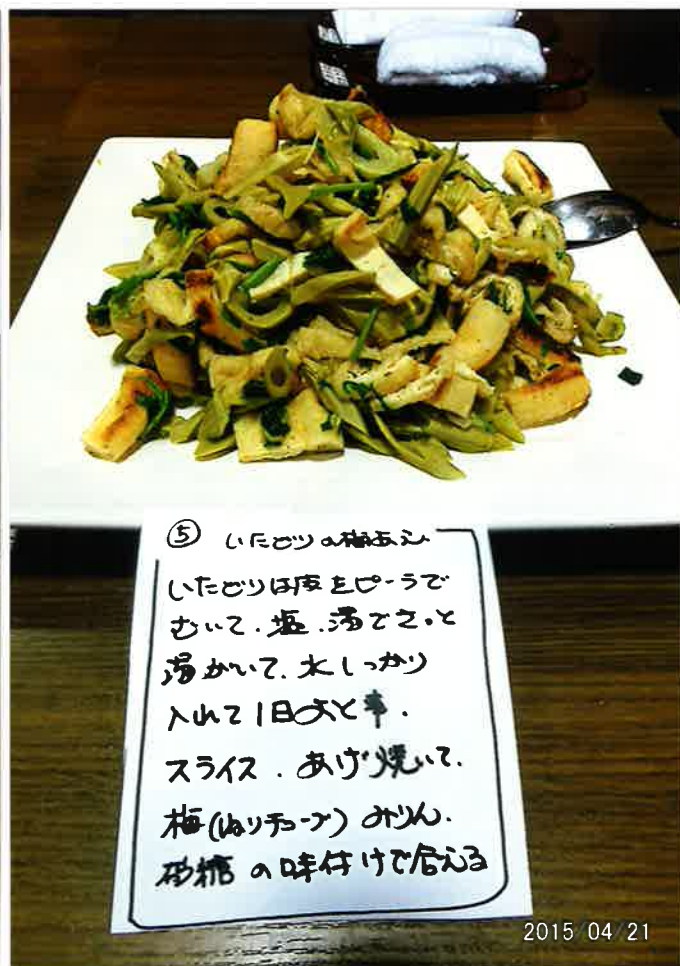 ⑤ いたどりの梅あえ
いたどりは皮をピーラで
むいて.塩.湯でさっと
湯がいて.水しっかり
入れて1日おと
スライス.あげ焼いて.
梅(ねりチューブ)みりん.
砂糖の味付けで合える
2015/04/21